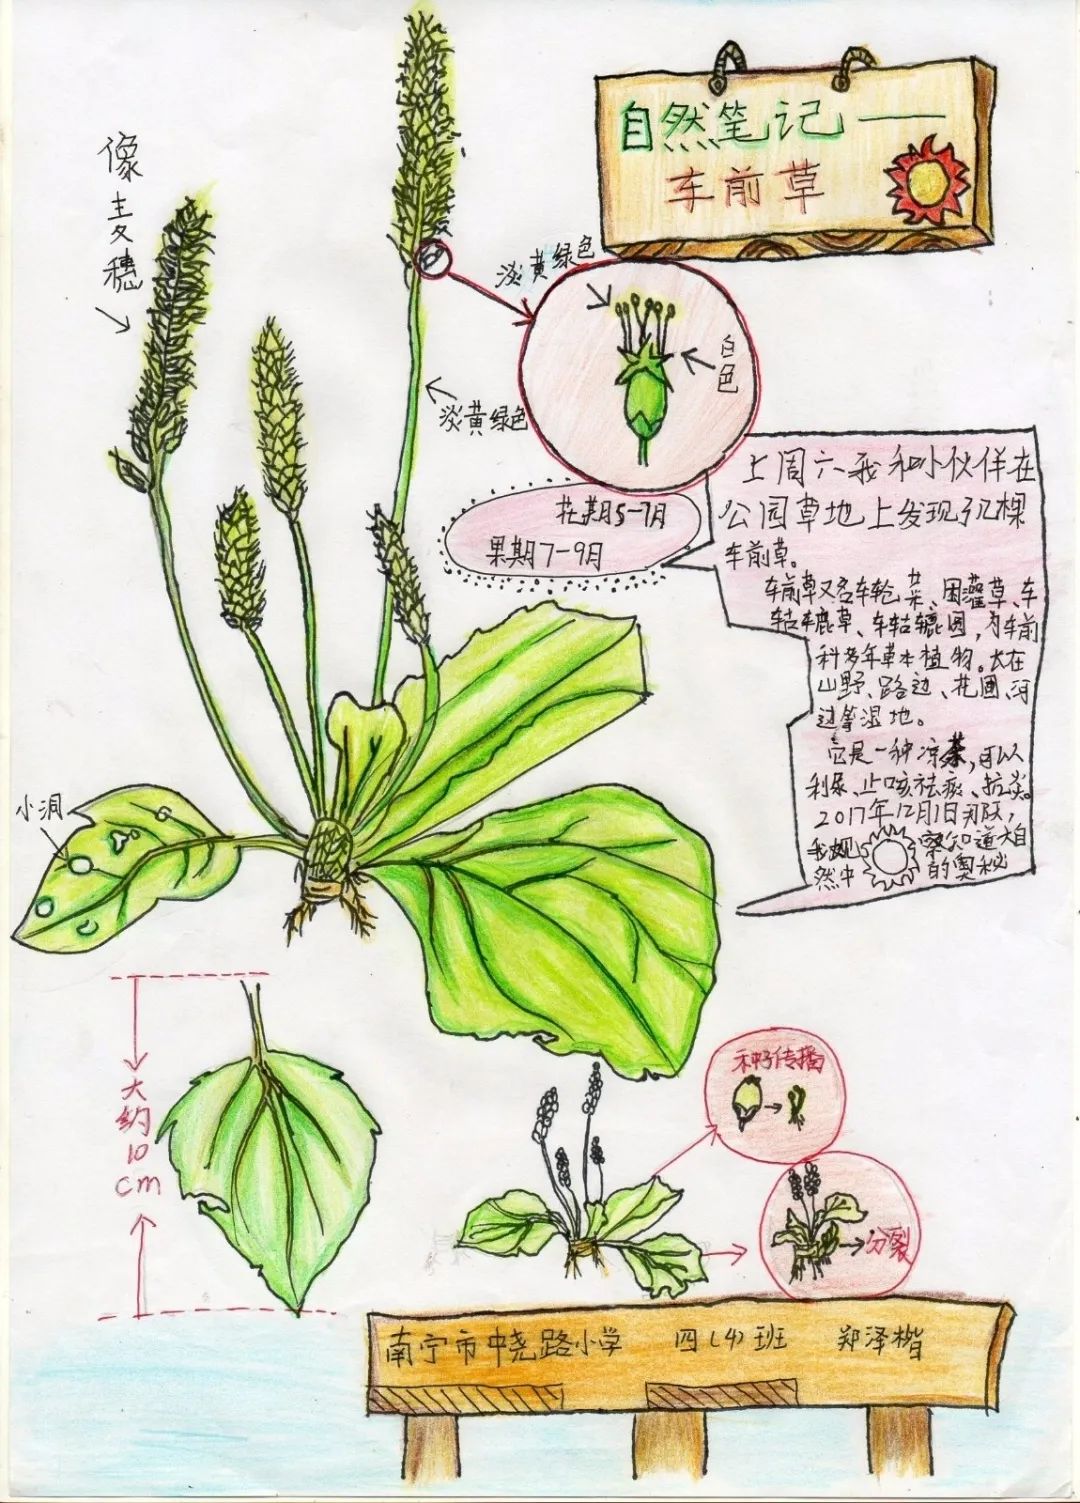 自然笔记——
车前草
像
麦
穗
淡黄绿色
白
色
淡黄绿色
花期5-7月
果期7-9月
上周六我和小伙伴在
公园草地上发现了几棵
车前草。
车前草又名车轮菜、田灌草、车
轱辘草、车轱辘园,为车前
科多年草本植物。长在
山野、路边、花圃、河
边等湿地。
它是一种凉茶,可以
利尿、止咳祛痰、抗炎。
2017年12月1日
知道大自
然中的奥秘
小洞
大
约
10
cm
种子传播
分裂
南宁市中尧路小学 四(4)班 郑泽楷